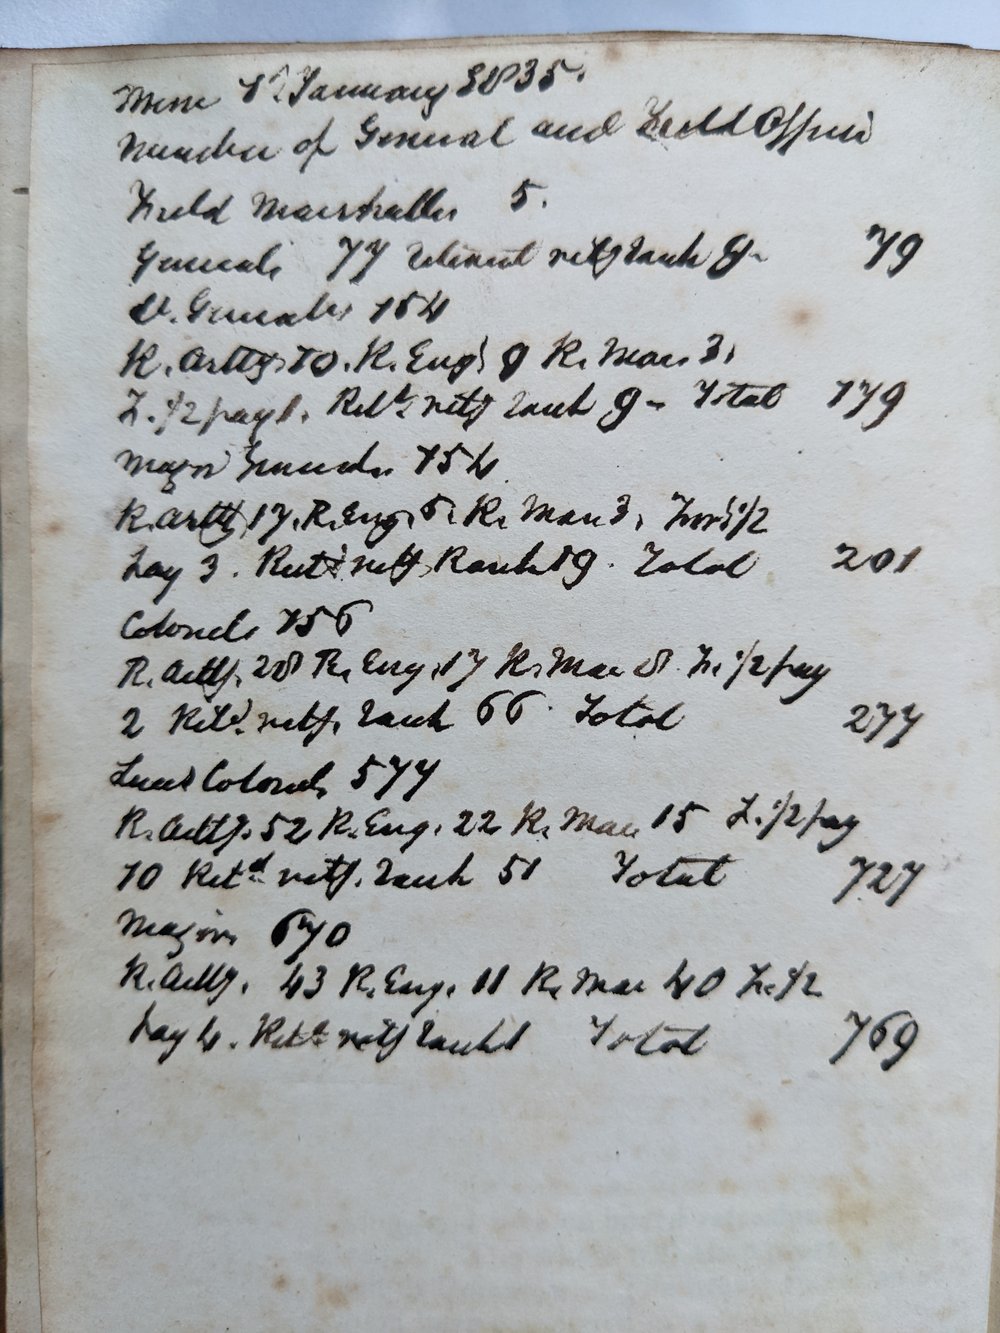 Mem 1st January 1835.
Number of General and Field Officers
Field Marshalls 5.
Generals 77 retired retg rank 2 79
Lt. Generals 154
R. Artty 10. R. Eng 2 R. Mar. 3.
F. 1/2 pay 1. Retd retg rank 9 - Total 179
Major Generals 154
R. Artty 17. R. Eng. 5. R. Mar 3. For 1/2
Pay 3. Retd retg Rank 19. Total 201
Colonels 156
R. Artty. 28 R. Eng. 17 R. Mar 8 F. 1/2 pay
2 Retd. retg. rank 66. Total 277
Lieut Colonels 577
R. Artty. 52 R. Eng. 22 R. Mar 15 F. 1/2 pay
10 Retd retg. rank 51 Total 727
Majors 670
R. Artty. 43 R. Eng. 11 R. Mar 40 F. 1/2
Pay 4. Retd retg rank 1 Total 769